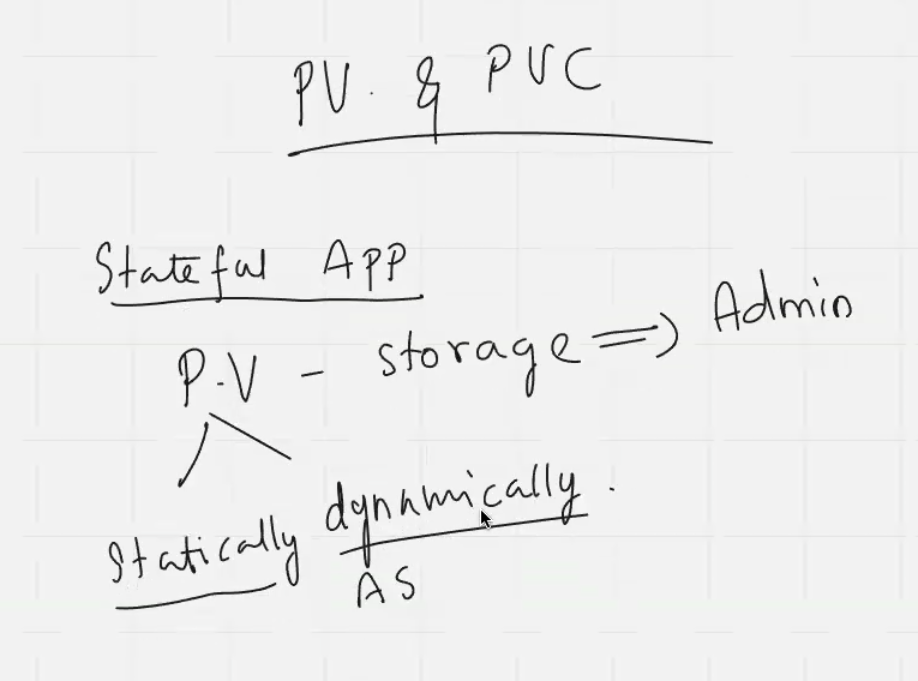 PV. & PVC
Stateful App
P.V - storage => Admin
statically dynamically.
AS